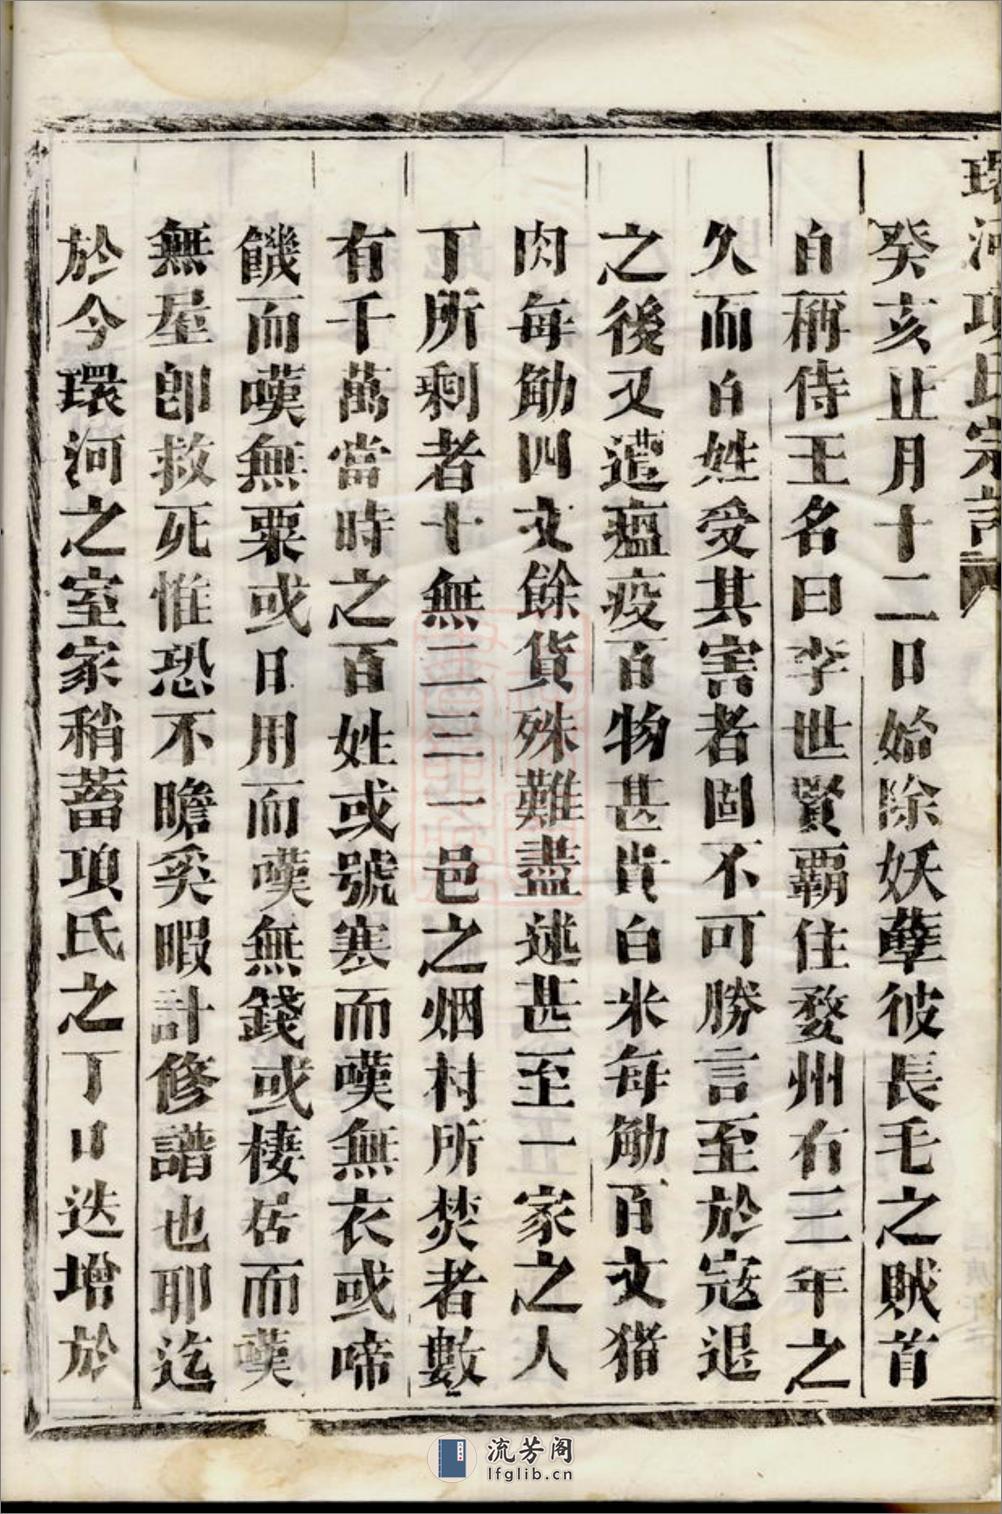 環河項氏宗譜
癸亥正月十二日始除妖孽彼長毛之賊首
自稱侍王名曰李世賢霸住婺州有三年之
久而百姓受其害者固不可勝言至於寇退
之後又遭瘟疫百物甚貴白米每觔百文猪
肉每觔四文餘貨殊難盡述甚至一家之人
丁所剩者十無二三一邑之烟村所焚者數
有千萬當時之百姓或號寒而嘆無衣或啼
饑而嘆無粟或日用而嘆無錢或棲居而嘆
無屋即救死惟恐不瞻奚暇計修譜也耶迄
於今環河之室家稍蓄項氏之丁口迭增於
流芳阁
lfglib.cn